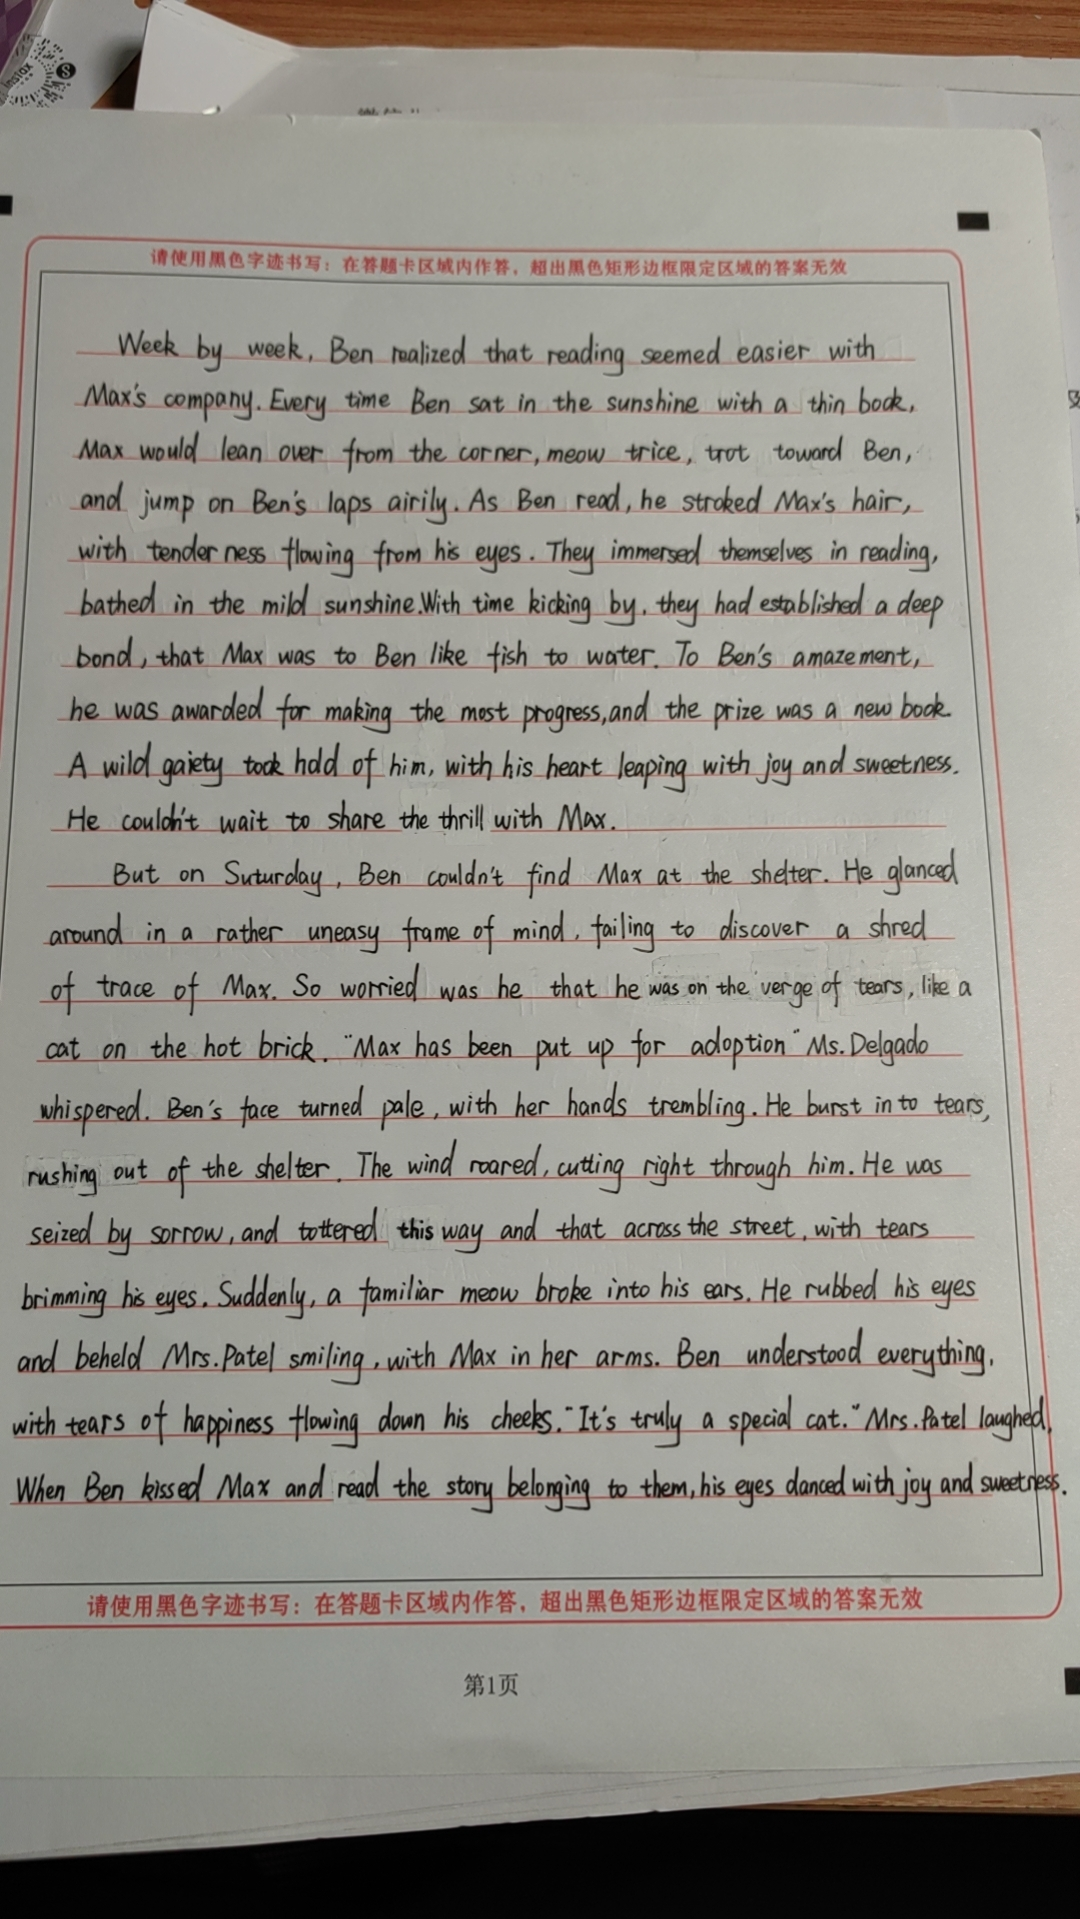 instax
请使用黑色字迹书写：在答题卡区域内作答，超出黑色矩形边框限定区域的答案无效
Week by week, Ben realized that reading seemed easier with
Max's company. Every time Ben sat in the sunshine with a thin book,
Max would lean over from the corner, meow trice, trot toward Ben,
and jump on Ben's laps airily. As Ben read, he stroked Max's hair,
with tenderness flowing from his eyes. They immersed themselves in reading,
bathed in the mild sunshine. With time kicking by, they had established a deep
bond, that Max was to Ben like fish to water. To Ben's amazement,
he was awarded for making the most progress, and the prize was a new book.
A wild gaiety took hold of him, with his heart leaping with joy and sweetness.
He couldn't wait to share the thrill with Max.
But on Suturday, Ben couldn't find Max at the shelter. He glanced
around in a rather uneasy frame of mind, failing to discover a shred
of trace of Max. So worried was he that he was on the verge of tears, like a
cat on the hot brick. "Max has been put up for adoption" Ms. Delgado
whispered. Ben's face turned pale, with her hands trembling. He burst into tears,
rushing out of the shelter. The wind roared, cutting right through him. He was
seized by sorrow, and tottered this way and that across the street, with tears
brimming his eyes. Suddenly, a familiar meow broke into his ears. He rubbed his eyes
and beheld Mrs. Patel smiling, with Max in her arms. Ben understood everything,
with tears of happiness flowing down his cheeks. "It's truly a special cat." Mrs. Patel laughed.
When Ben kissed Max and read the story belonging to them, his eyes danced with joy and sweetness.
请使用黑色字迹书写：在答题卡区域内作答，超出黑色矩形边框限定区域的答案无效
第1页